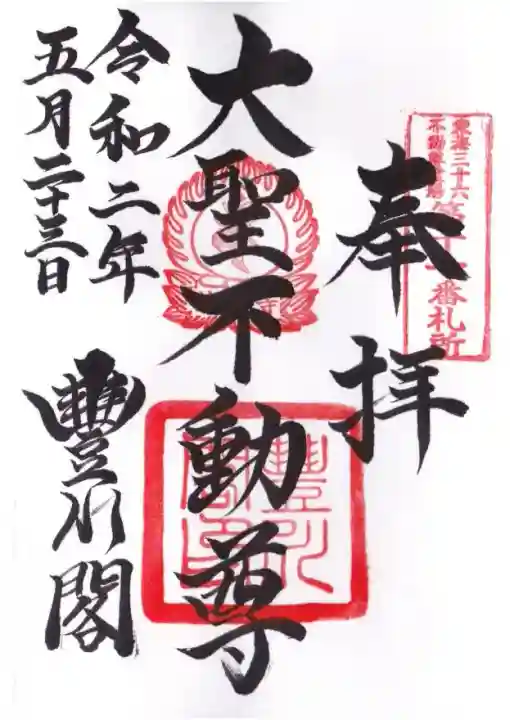 東海三十六
不動尊霊場
番札所
奉拝
大聖不動尊
令和二年
五月二十三日
豐川閣